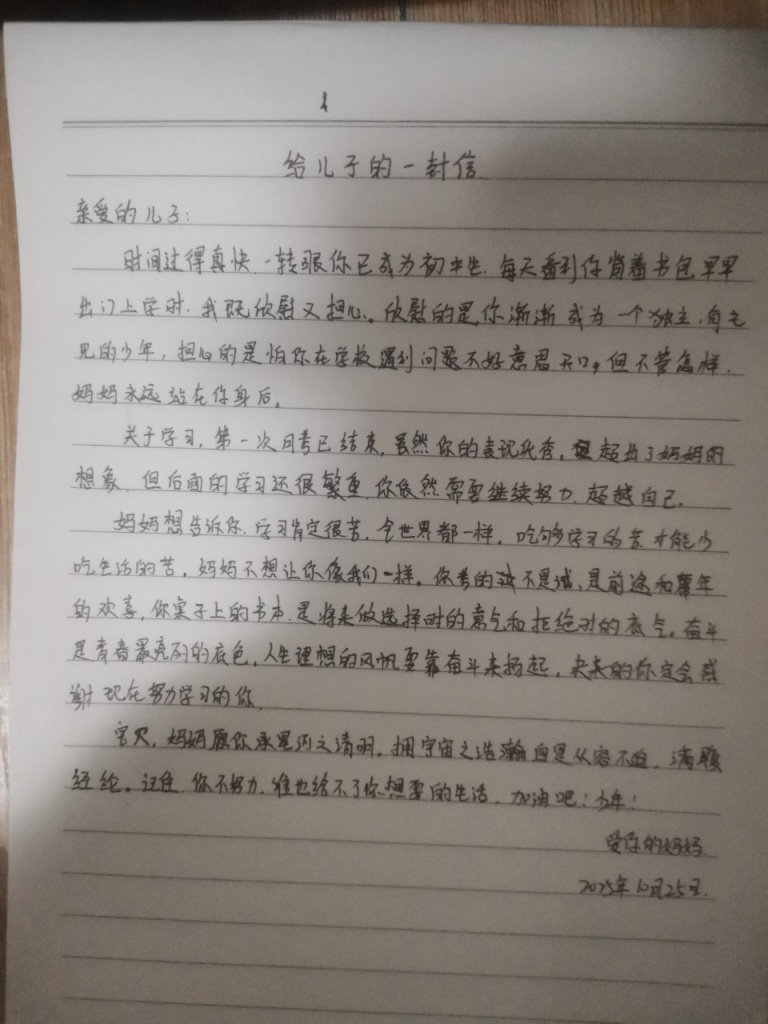 给儿子的一封信
亲爱的儿子：
时间过得真快，一转眼你已成为初中生，每天看到你背着书包早早
出门上学时，我既欣慰又担心。欣慰的是你渐渐成为一个独立，有主
见的少年，担心的是怕你在学校遇到问题不好意思开口，但不管怎样，
妈妈永远站在你身后。
关于学习，第一次月考已结束，虽然你的表现优秀，超出了妈妈的
想象，但后面的学习还很繁重，你依然需要继续努力，超越自己。
妈妈想告诉你，学习肯定很苦，全世界都一样，吃够学习的苦才能少
吃生活的苦，妈妈不想让你像我们一样。你考的不是试，是前途和暮年
的欢喜，你桌子上的书本，是将来做选择时的意气和拒绝时的底气。奋斗
是青春最亮丽的底色，人生理想的风帆要靠奋斗来扬起，未来的你定会感
谢现在努力学习的你。
妈妈愿你承星河之清明，拥宇宙之浩瀚，自是从容不迫，满腹
经纶。记住，你不努力，谁也给不了你想要的生活，加油吧！少年！
爱你的妈妈
2025年10月25日